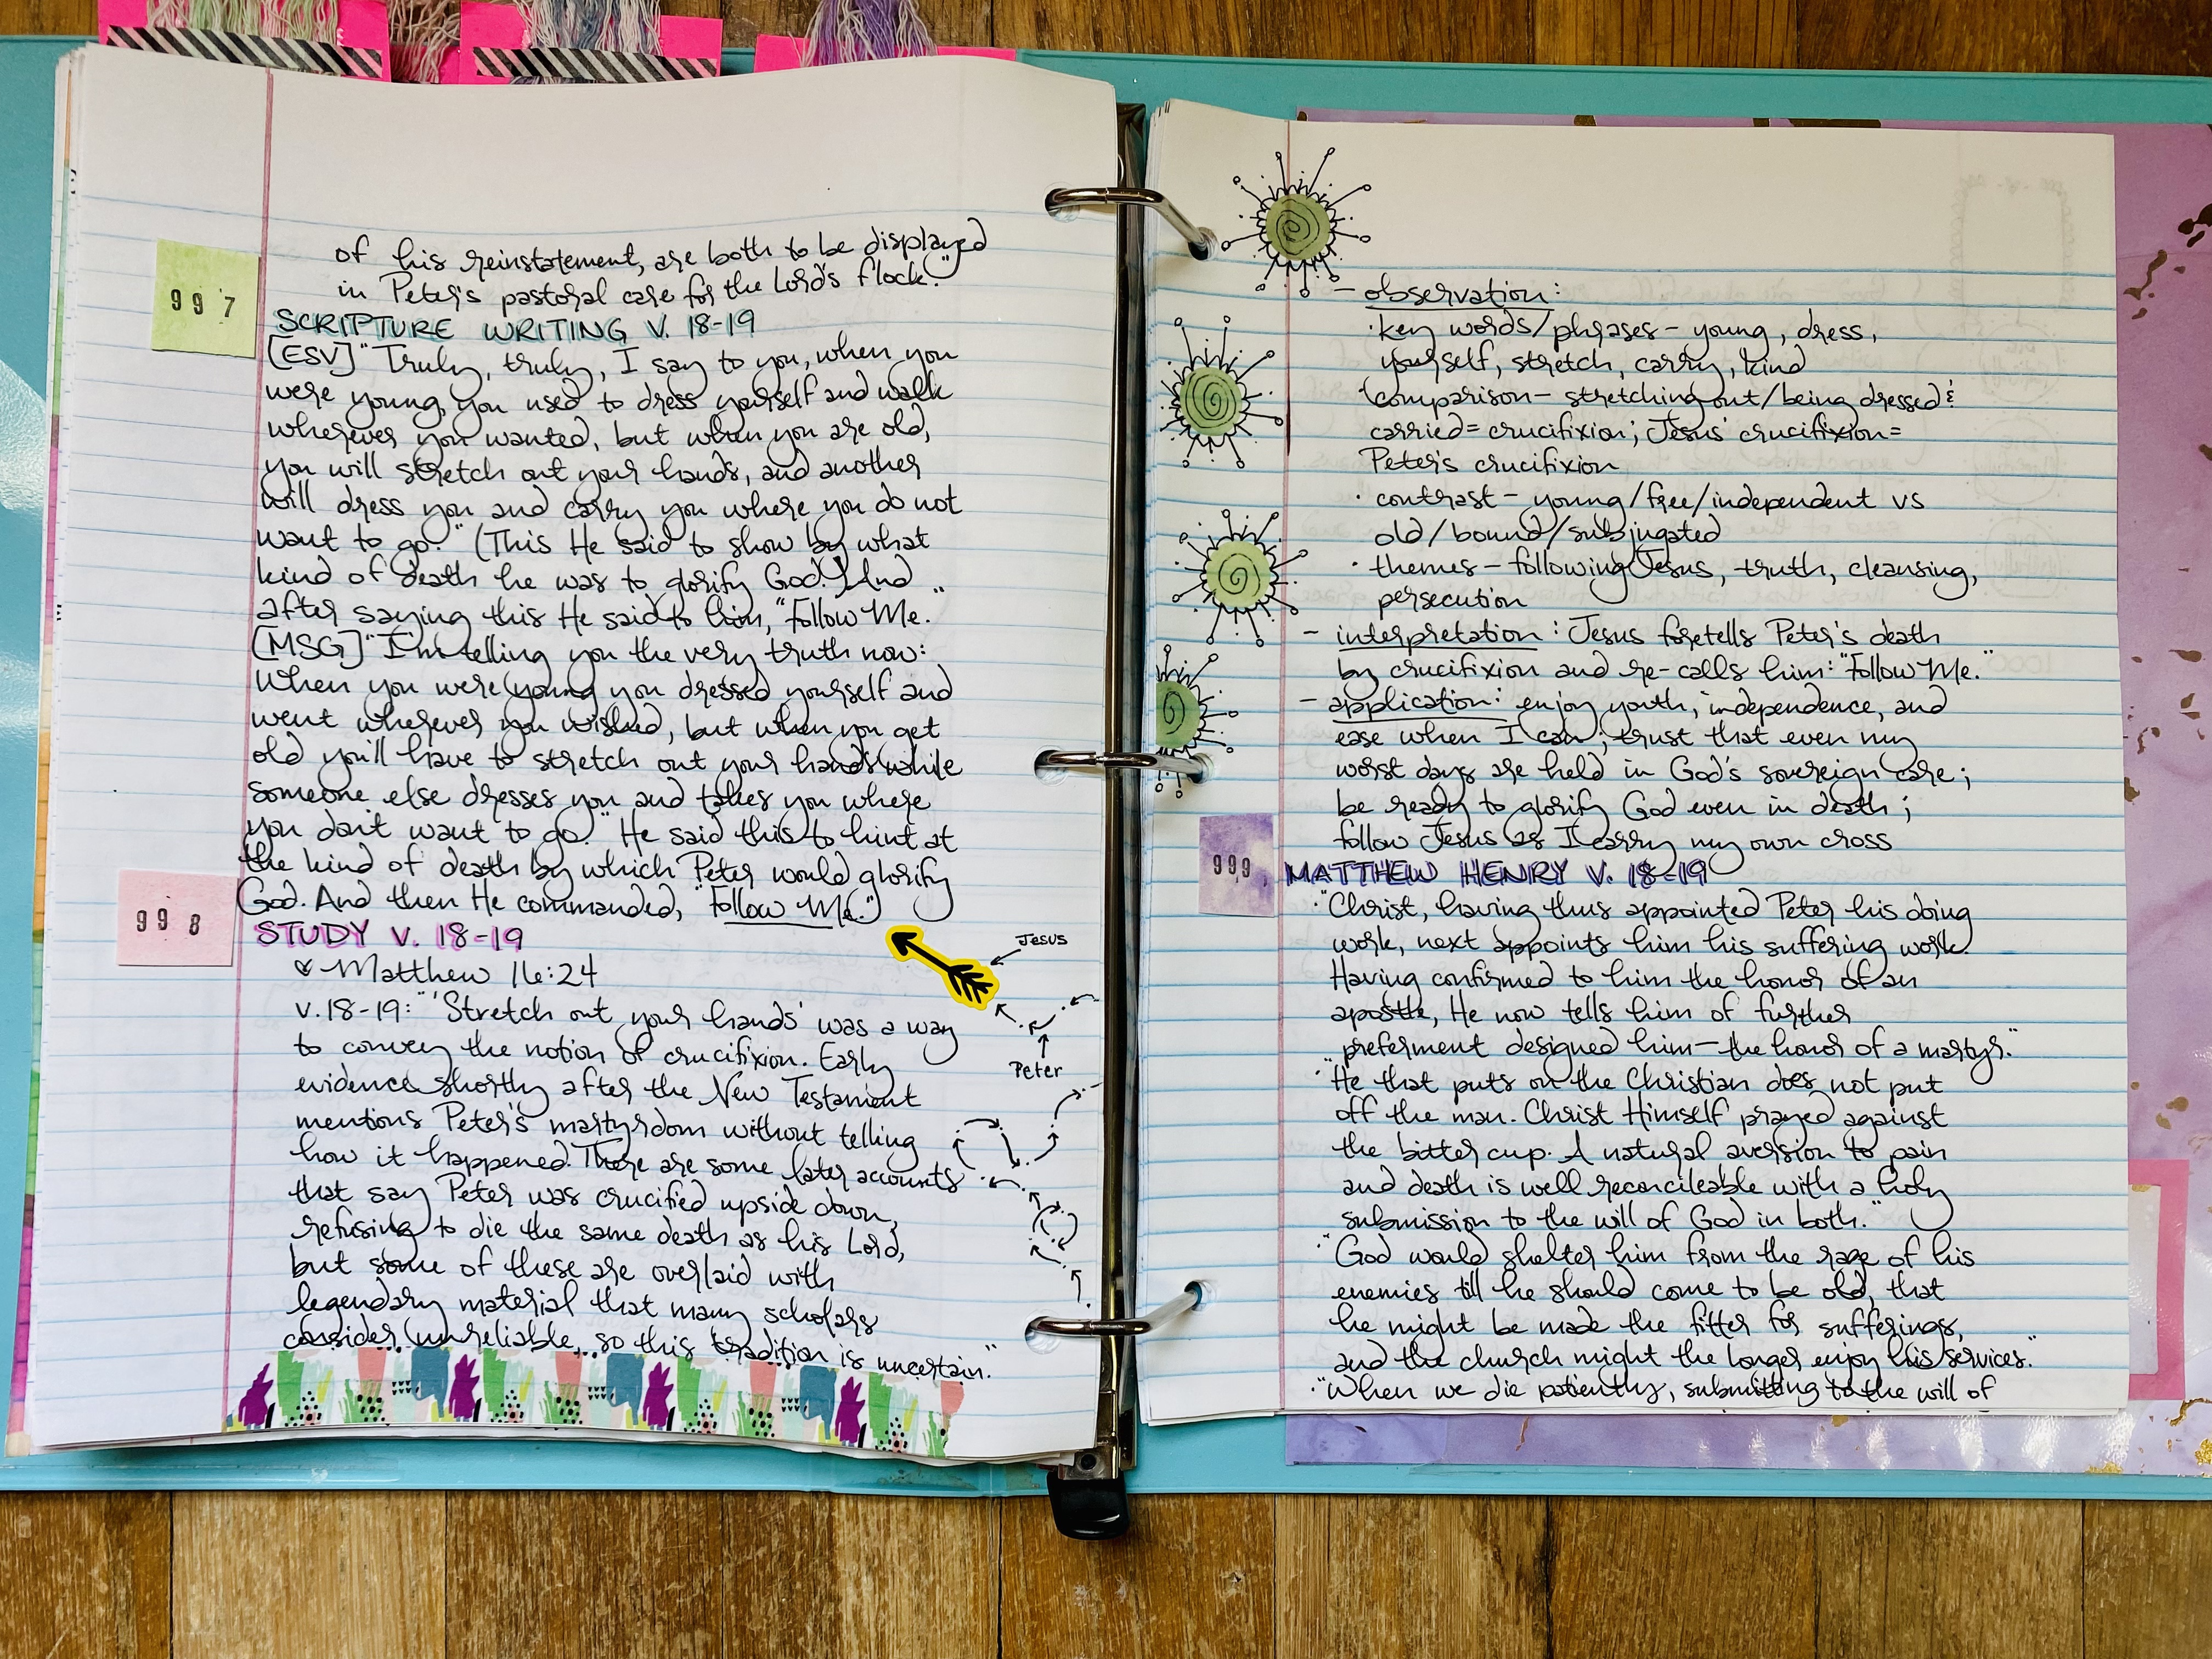 of his reinstatement, are both to be displayed
in Peter's pastoral care for the Lord's flock."
997
SCRIPTURE WRITING V. 18-19
[ESV] "Truly, truly, I say to you, when you
were young, you used to dress yourself and walk
wherever you wanted, but when you are old,
you will stretch out your hands, and another
will dress you and carry you where you do not
want to go." (This He said to show by what
kind of death he was to glorify God.) And
after saying this He said to him, "Follow Me."
[MSG] "I'm telling you the very truth now:
When you were young you dressed yourself and
went wherever you wished, but when you get
old you'll have to stretch out your hands while
someone else dresses you and takes you where
you don't want to go." He said this to hint at
the kind of death by which Peter would glorify
God. And then He commanded, "Follow Me."
998
STUDY V. 18-19
Matthew 16:24
v. 18-19: "'Stretch out your hands' was a way
to convey the notion of crucifixion. Early
evidence shortly after the New Testament
mentions Peter's martyrdom without telling
how it happened. There are some later accounts
that say Peter was crucified upside down,
refusing to die the same death as his Lord,
but some of these are overlaid with
legendary material that many scholars
consider unreliable, so this tradition is uncertain."
Jesus
Peter
- observation:
· key words/phrases - young, dress,
yourself, stretch, carry, kind
· comparison - stretching out/being dressed &
carried = crucifixion; Jesus' crucifixion =
Peter's crucifixion
· contrast - young/free/independent vs
old/bound/subjugated
· themes - following Jesus, truth, cleansing,
persecution
- interpretation: Jesus foretells Peter's death
by crucifixion and re-calls him: "Follow Me."
- application: enjoy youth, independence, and
ease when I can; trust that even my
worst days are held in God's sovereign care;
be ready to glorify God even in death;
follow Jesus as I carry my own cross
999
MATTHEW HENRY V. 18-19
· "Christ, having thus appointed Peter his doing
work, next appoints him his suffering work.
Having confirmed to him the honor of an
apostle, He now tells him of further
preferment designed him—the honor of a martyr."
· "He that puts on the Christian does not put
off the man. Christ Himself prayed against
the bitter cup. A natural aversion to pain
and death is well reconcileable with a holy
submission to the will of God in both."
· "God would shelter him from the rage of his
enemies till he should come to be old, that
he might be made the fitter for sufferings,
and the church might the longer enjoy his services."
· "When we die patiently, submitting to the will of